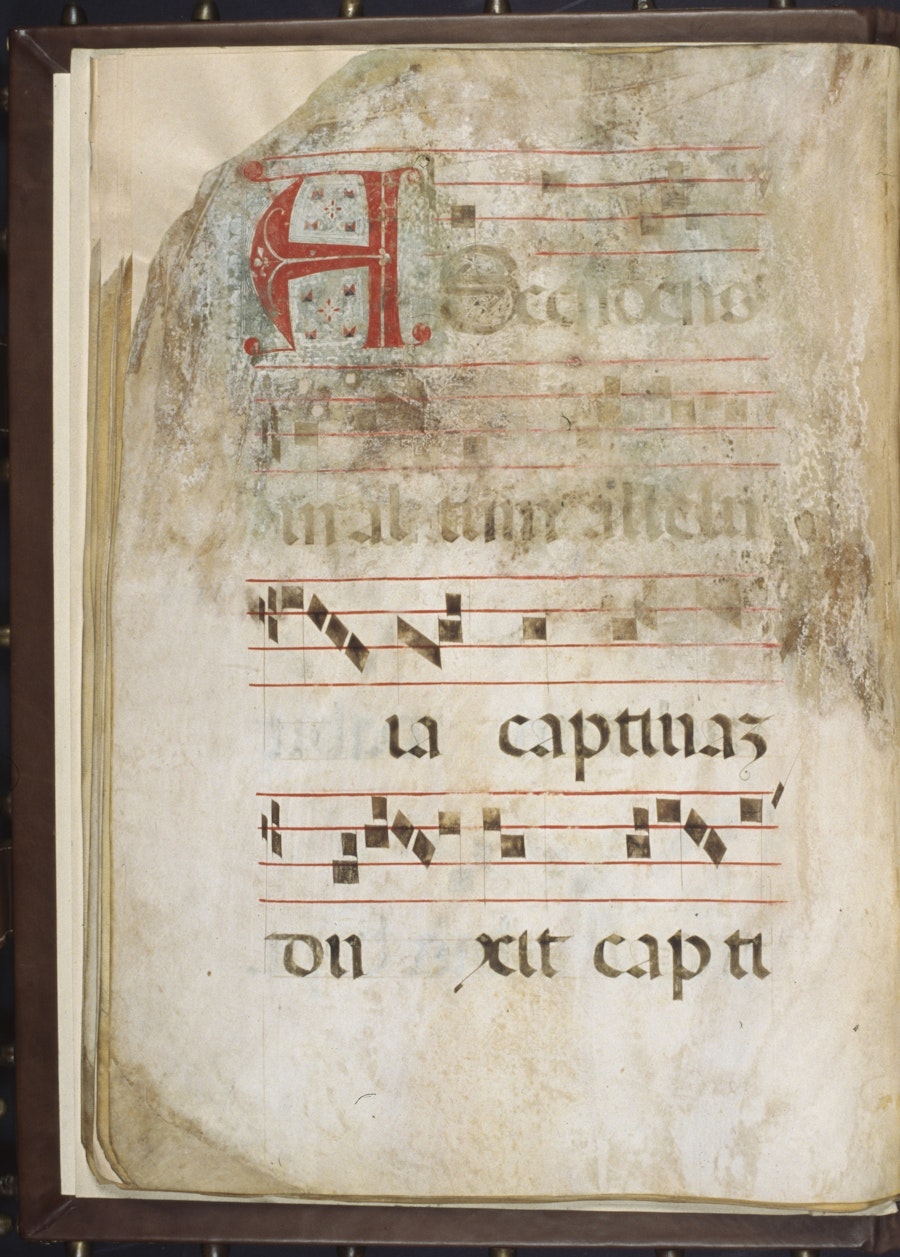 AScendens
in al tum allelu
ia captiuaʒ
du xit capti